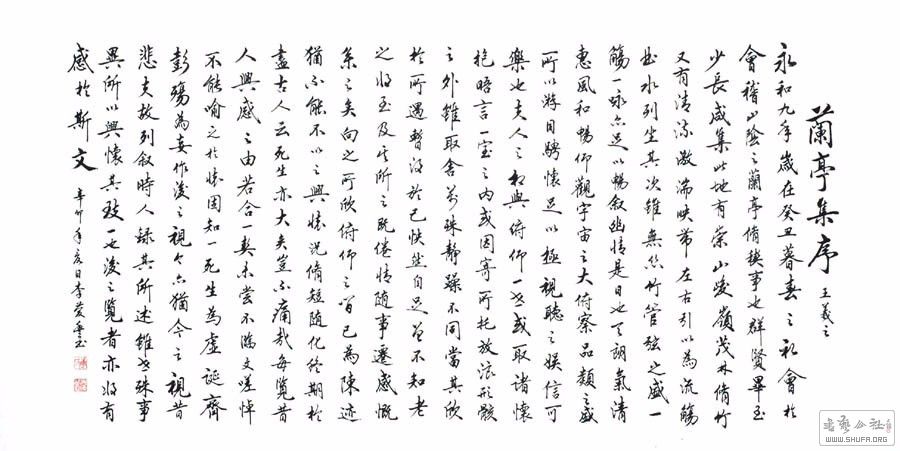 蘭亭集序
王羲之
永和九年歲在癸丑暮春之初會於
會稽山陰之蘭亭脩禊事也群賢畢至
少長咸集此地有崇山峻嶺茂林脩竹
又有清流激湍映帶左右引以為流觴
曲水列坐其次雖無絲竹管弦之盛一
觴一詠亦足以暢敘幽情是日也天朗氣清
惠風和暢仰觀宇宙之大俯察品類之盛
所以游目騁懷足以極視聽之娛信可
樂也夫人之相與俯仰一世或取諸懷
抱晤言一室之內或因寄所托放浪形骸
之外雖取舍萬殊靜躁不同當其欣
於所遇暫得於己怏然自足曾不知老
之將至及其所之既倦情隨事遷感慨
係之矣向之所欣俯仰之間已為陳迹
猶不能不以之興懷況脩短隨化終期於
盡古人云死生亦大矣豈不痛哉每覽昔
人興感之由若合一契未嘗不臨文嗟悼
不能喻之於懷固知一死生為虛誕齊
彭殤為妄作後之視今亦猶今之視昔
悲夫故列敘時人錄其所述雖世殊事
異所以興懷其致一也後之覽者亦將有
感於斯文
辛卯年夏日李愛玉
書藝公社
WWW.SHUFA.ORG